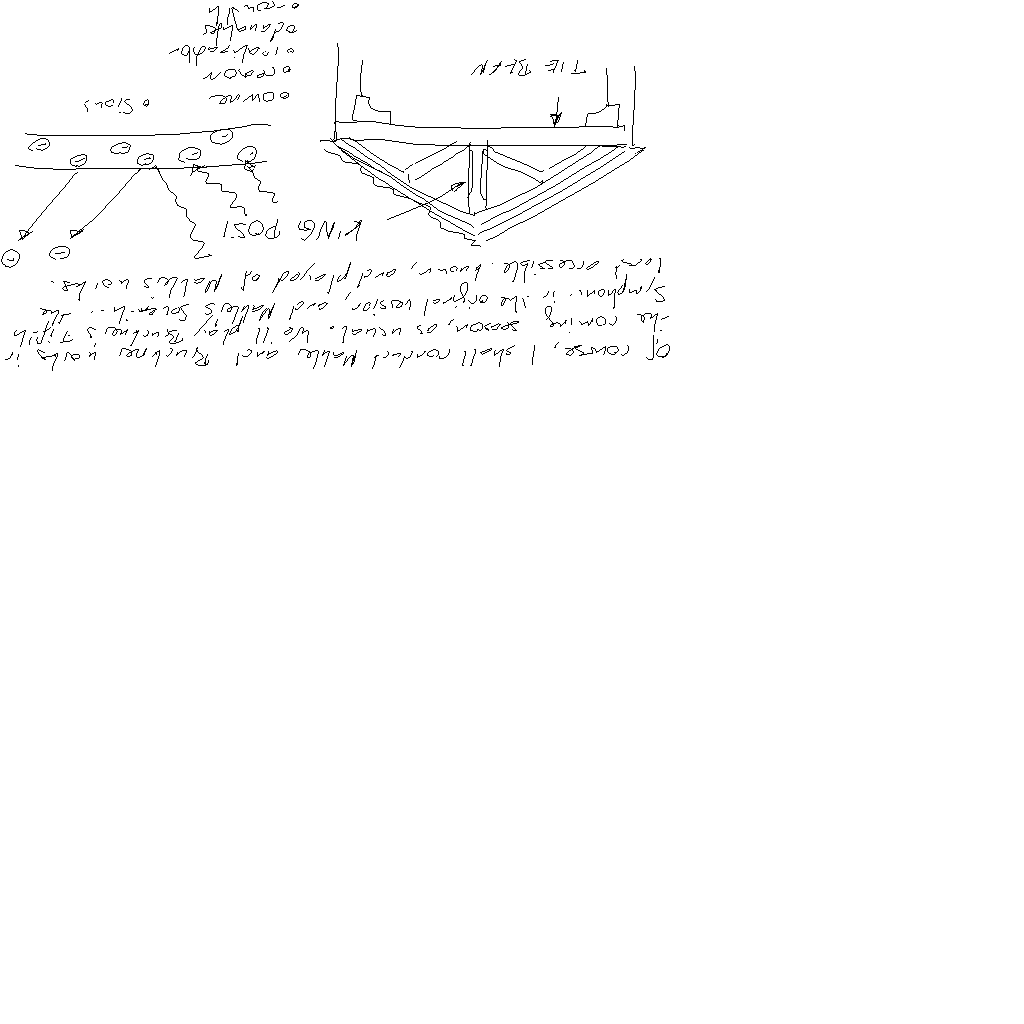 Of course, I shall conduct Mahler and Bruckner works in
the coming season, as usual. We'll play Bruckner's Fifth
Symphony in the original version, and Mahler's Seventh... the
least accessible, known, and played of Mahler's works.
KING POST
TIE BEAM
reason